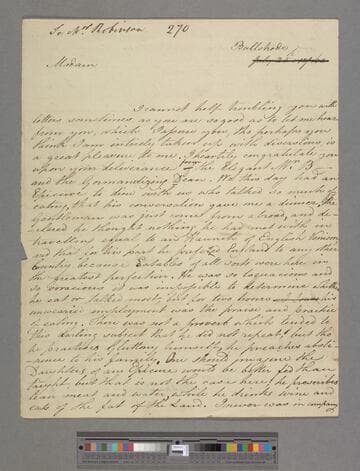 To Mrs Robinson 270
Bullstrode
Madam
I cannot help troubling you with
letters sometimes as you are so good as to let me hear
from you, which I assure you, tho perhaps you
think I am entirely taken up with diversions is
a great pleasure to me. I heartily congratulate you
upon your deliverance from the Elegant Mr B
and the Gormandizing Dean. We this day had an
Epicure to dine with us who talked so much of
eating, that his conversation gave me a dinner. The
Gentleman was just come from abroad, and de
clared he thought nothing he had met with in
travelling equal to an Haunch of English Venison
and that for his part he prefer'd England to any other
Country because Eatables of all sorts were here in
the greatest perfection. He was so loquacious and
so voracious it was impossible to determine whether
he eat or talked most, but for two hours his
unwearied employment was the praise and practice
of eating. There was not a proverb which tended to
this darling subject that he did not repeat, but tho
he practises Gluttony himself, he preaches absti
nence to his family. One should imagine the
Daughters of an Epicure wou'd be better fed than
taught but that is not the case here, he prescribes
lean meat and water, while he drinks wine and
eats of the fat of the Land. I never was in company